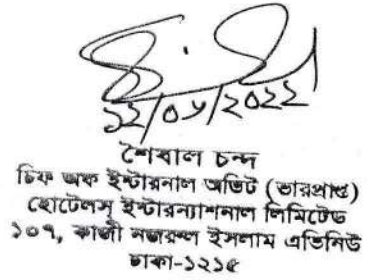 ১২/০৬/২০২২
শৈবাল চন্দ
চিফ অফ ইন্টারনাল অডিট (ভারপ্রাপ্ত)
হোটেলস্ ইন্টারন্যাশনাল লিমিটেড
১০৭, কাজী নজরুল ইসলাম এভিনিউ
ঢাকা-১২১৫